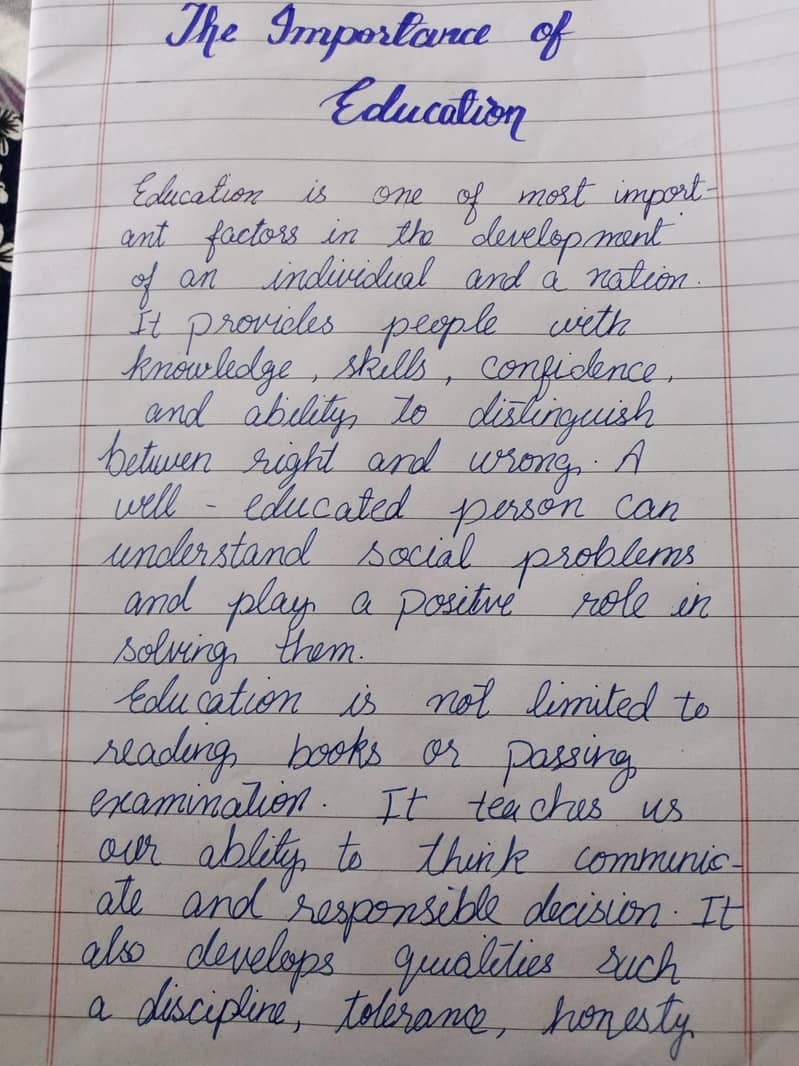 The Importance of
Education
Education is one of most import-
ant factors in the development
of an individual and a nation.
It provides people with
knowledge, skills, confidence,
and ability to distinguish
between right and wrong. A
well - educated person can
understand social problems
and play a positive role in
solving them.
Education is not limited to
reading books or passing
examination. It teaches us
our ablity to think communic-
ate and responsible decision. It
also develops qualities such
a discipline, tolerance, honesty